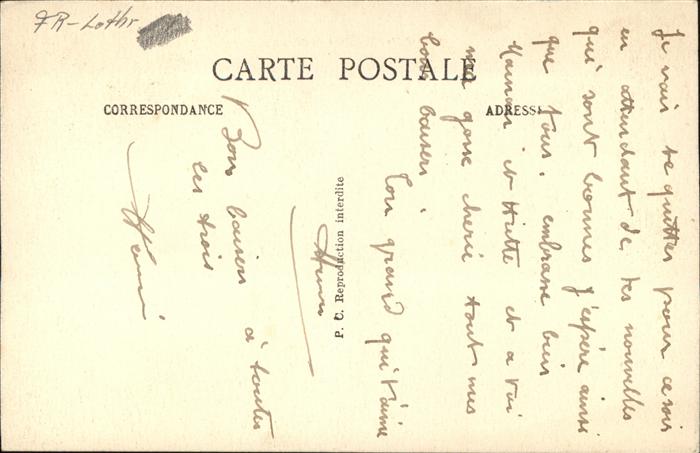 FR-Lothr
CARTE POSTALE
CORRESPONDANCE
ADRESSE
P. C. Reproduction interdite
Je vais te quitter pour ce soir
en attendant de tes nouvelles
qui sont bonnes j'espère ainsi
que tous. embrasse bien
Maman et et a toi
ma gosse cherie tout mes
bons baisers.
Ton grand qui t'aime
Bons baisers à toutes
les trois